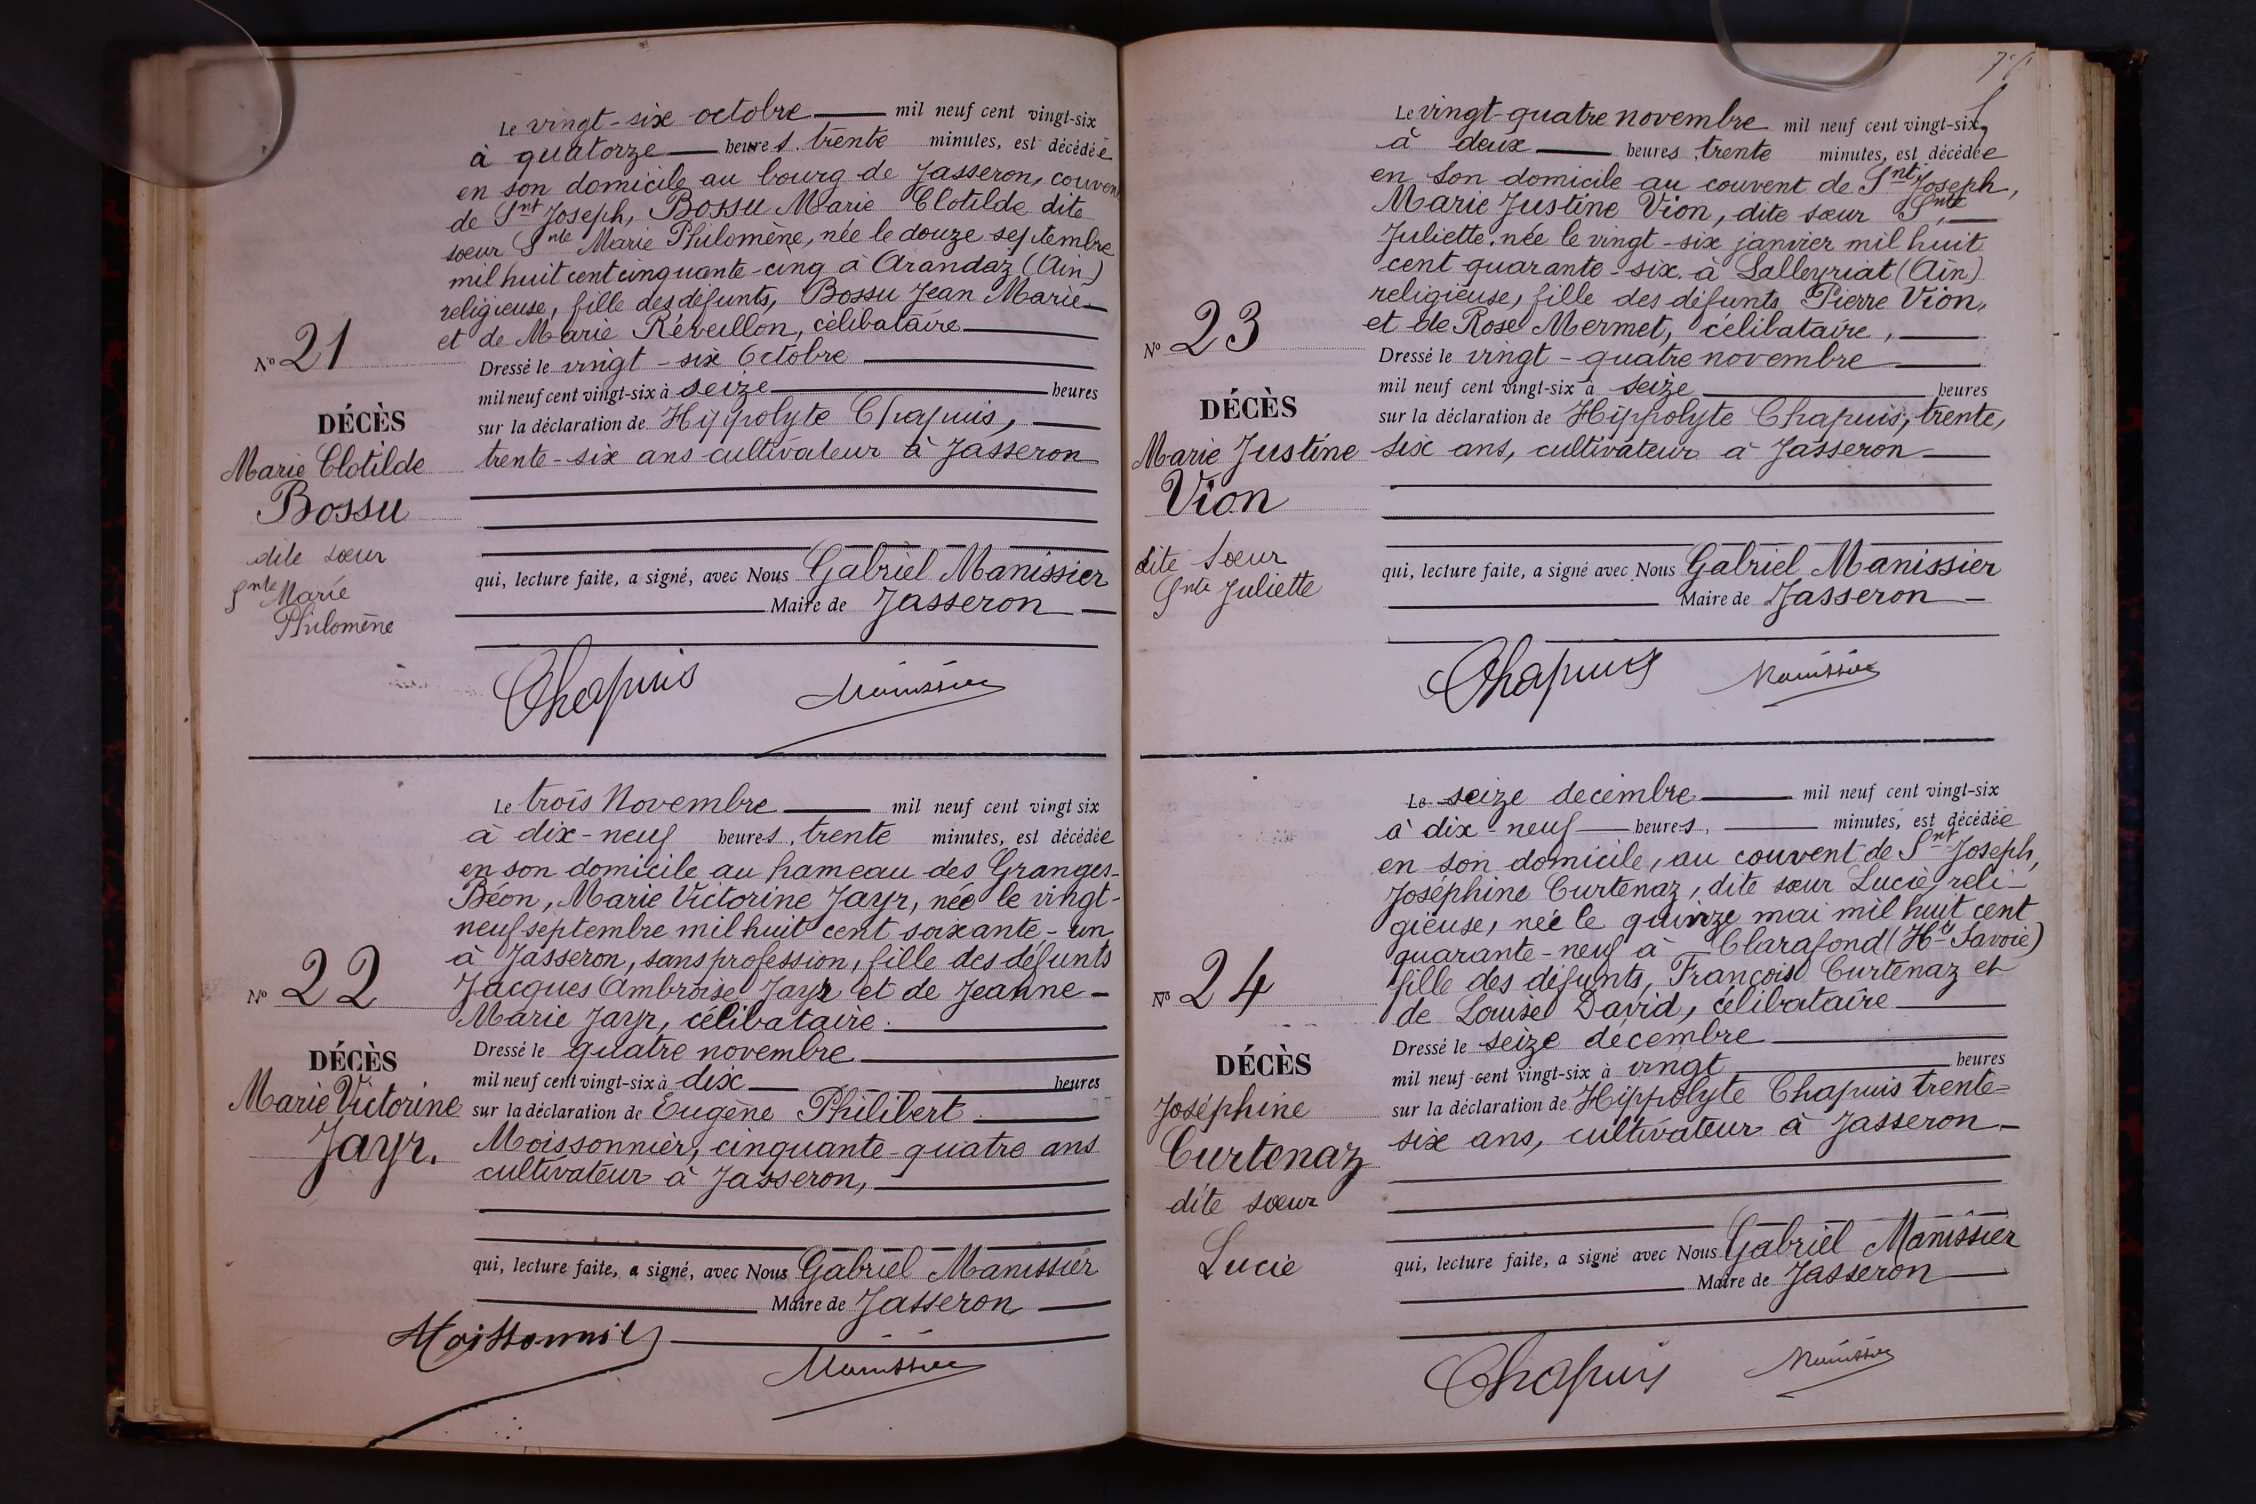 Le vingt-six octobre mil neuf cent vingt-six
à quatorze heures trente minutes, est décédée
en son domicile au bourg de Jasseron, couvent
de Snt Joseph, Bossu Marie Clotilde dite
sœur Snte Marie Philomène, née le douze septembre
mil huit cent cinquante-cinq à Arandaz (Ain)
religieuse, fille des défunts, Bossu Jean Marie
et de Marie Réveillon, célibataire
No 21
Dressé le vingt-six Octobre
mil neuf cent vingt-six à seize heures
DÉCÈS
sur la déclaration de Hyppolyte Chapuis,
Marie Clotilde
trente-six ans cultivateur à Jasseron
Bossu
dite sœur
Snte Marie
Philomène
qui, lecture faite, a signé, avec Nous Gabriel Manissier
Maire de Jasseron
Chapuis Manissier
Le trois Novembre mil neuf cent vingt six
à dix-neuf heures, trente minutes, est décédée
en son domicile au hameau des Granges-
Béon, Marie Victorine Jayr, née le vingt-
neuf septembre mil huit cent soixante-un
à Jasseron, sans profession, fille des défunts
Jacques Ambroise Jayr et de Jeanne-
Marie Jayr, célibataire.
No 22
Dressé le quatre novembre
mil neuf cent vingt-six à dix heures
DÉCÈS
Marie Victorine
Jayr.
sur la déclaration de Eugène Philibert
Moissonnier, cinquante-quatre ans
cultivateur à Jasseron,
qui, lecture faite, a signé, avec Nous Gabriel Manissier
Maire de Jasseron
Moissonnier Manissier
Le vingt-quatre novembre mil neuf cent vingt-six,
à deux heures, trente minutes, est décédée
en son domicile au couvent de Snt Joseph,
Marie Justine Vion, dite sœur Snte,
Juliette, née le vingt-six janvier mil huit
cent quarante-six à Lalleyriat (Ain)
religieuse, fille des défunts Pierre Vion,
et de Rose Mermet, célibataire,
No 23
Dressé le vingt-quatre novembre
mil neuf cent vingt-six à seize heures
DÉCÈS
sur la déclaration de Hippolyte Chapuis, trente,
Marie Justine
six ans, cultivateur à Jasseron
Vion
dite Sœur
Snte Juliette
qui, lecture faite, a signé avec Nous Gabriel Manissier
Maire de Jasseron
Chapuis Manissier
Le seize decembre mil neuf cent vingt-six
à dix-neuf heures, minutes, est décédée
en son domicile, au couvent de Snt Joseph,
Joséphine Curtenaz, dite sœur Lucie, reli-
gieuse, née le quinze mai mil huit cent
quarante-neuf à Clarafond (Hte Savoie)
fille des défunts, François Curtenaz et
de Louise David, célibataire
No 24
Dressé le seize décembre
mil neuf cent vingt-six à vingt heures
DÉCÈS
Joséphine
Curtenaz
dite sœur
Lucie
sur la déclaration de Hippolyte Chapuis trente-
six ans, cultivateur à Jasseron
qui, lecture faite, a signé avec Nous Gabriel Manissier
Maire de Jasseron
Chapuis Manissier